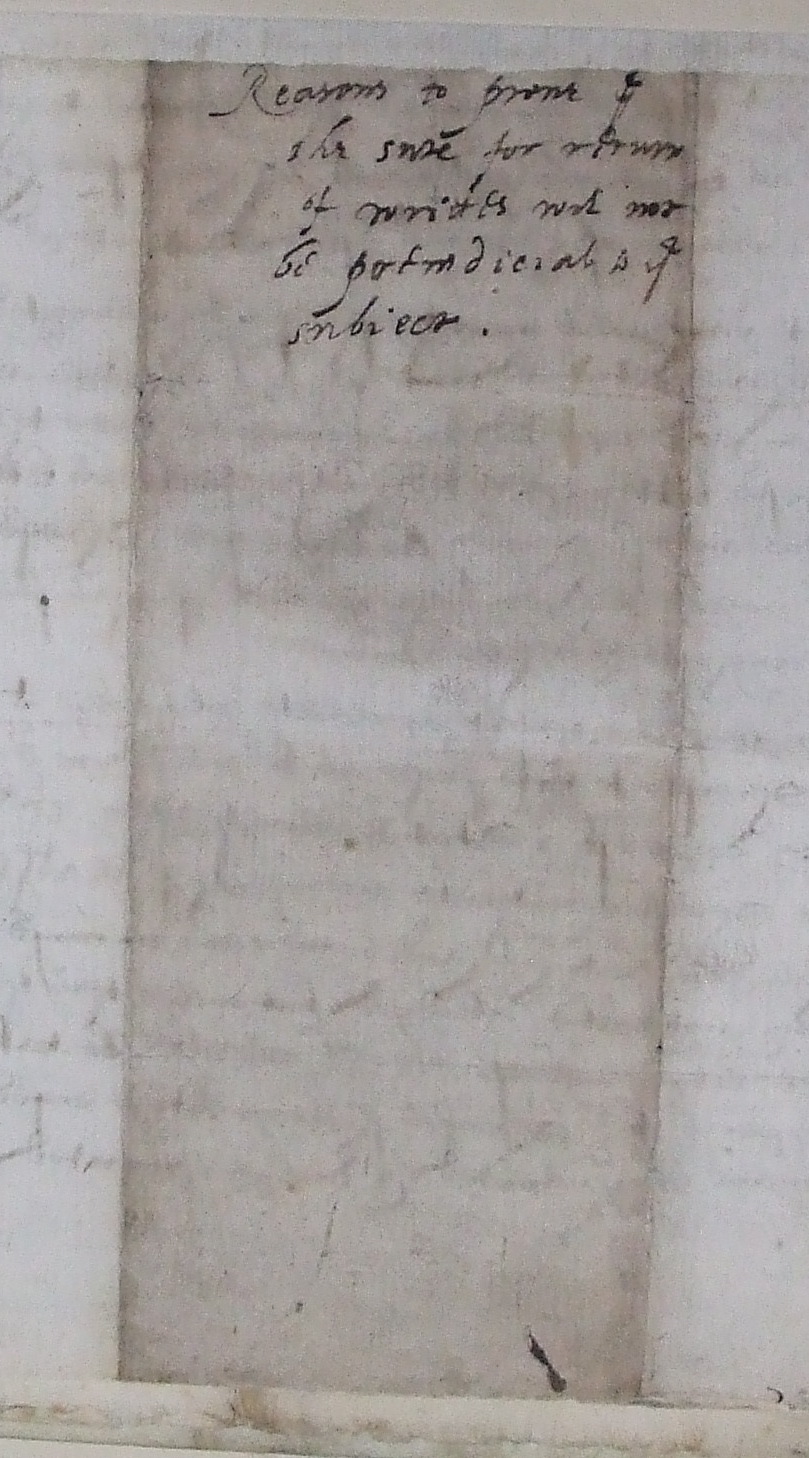 Reasons to proue yt
the sute for return
of writtes wil not
be preiudicial to ye
subiect.